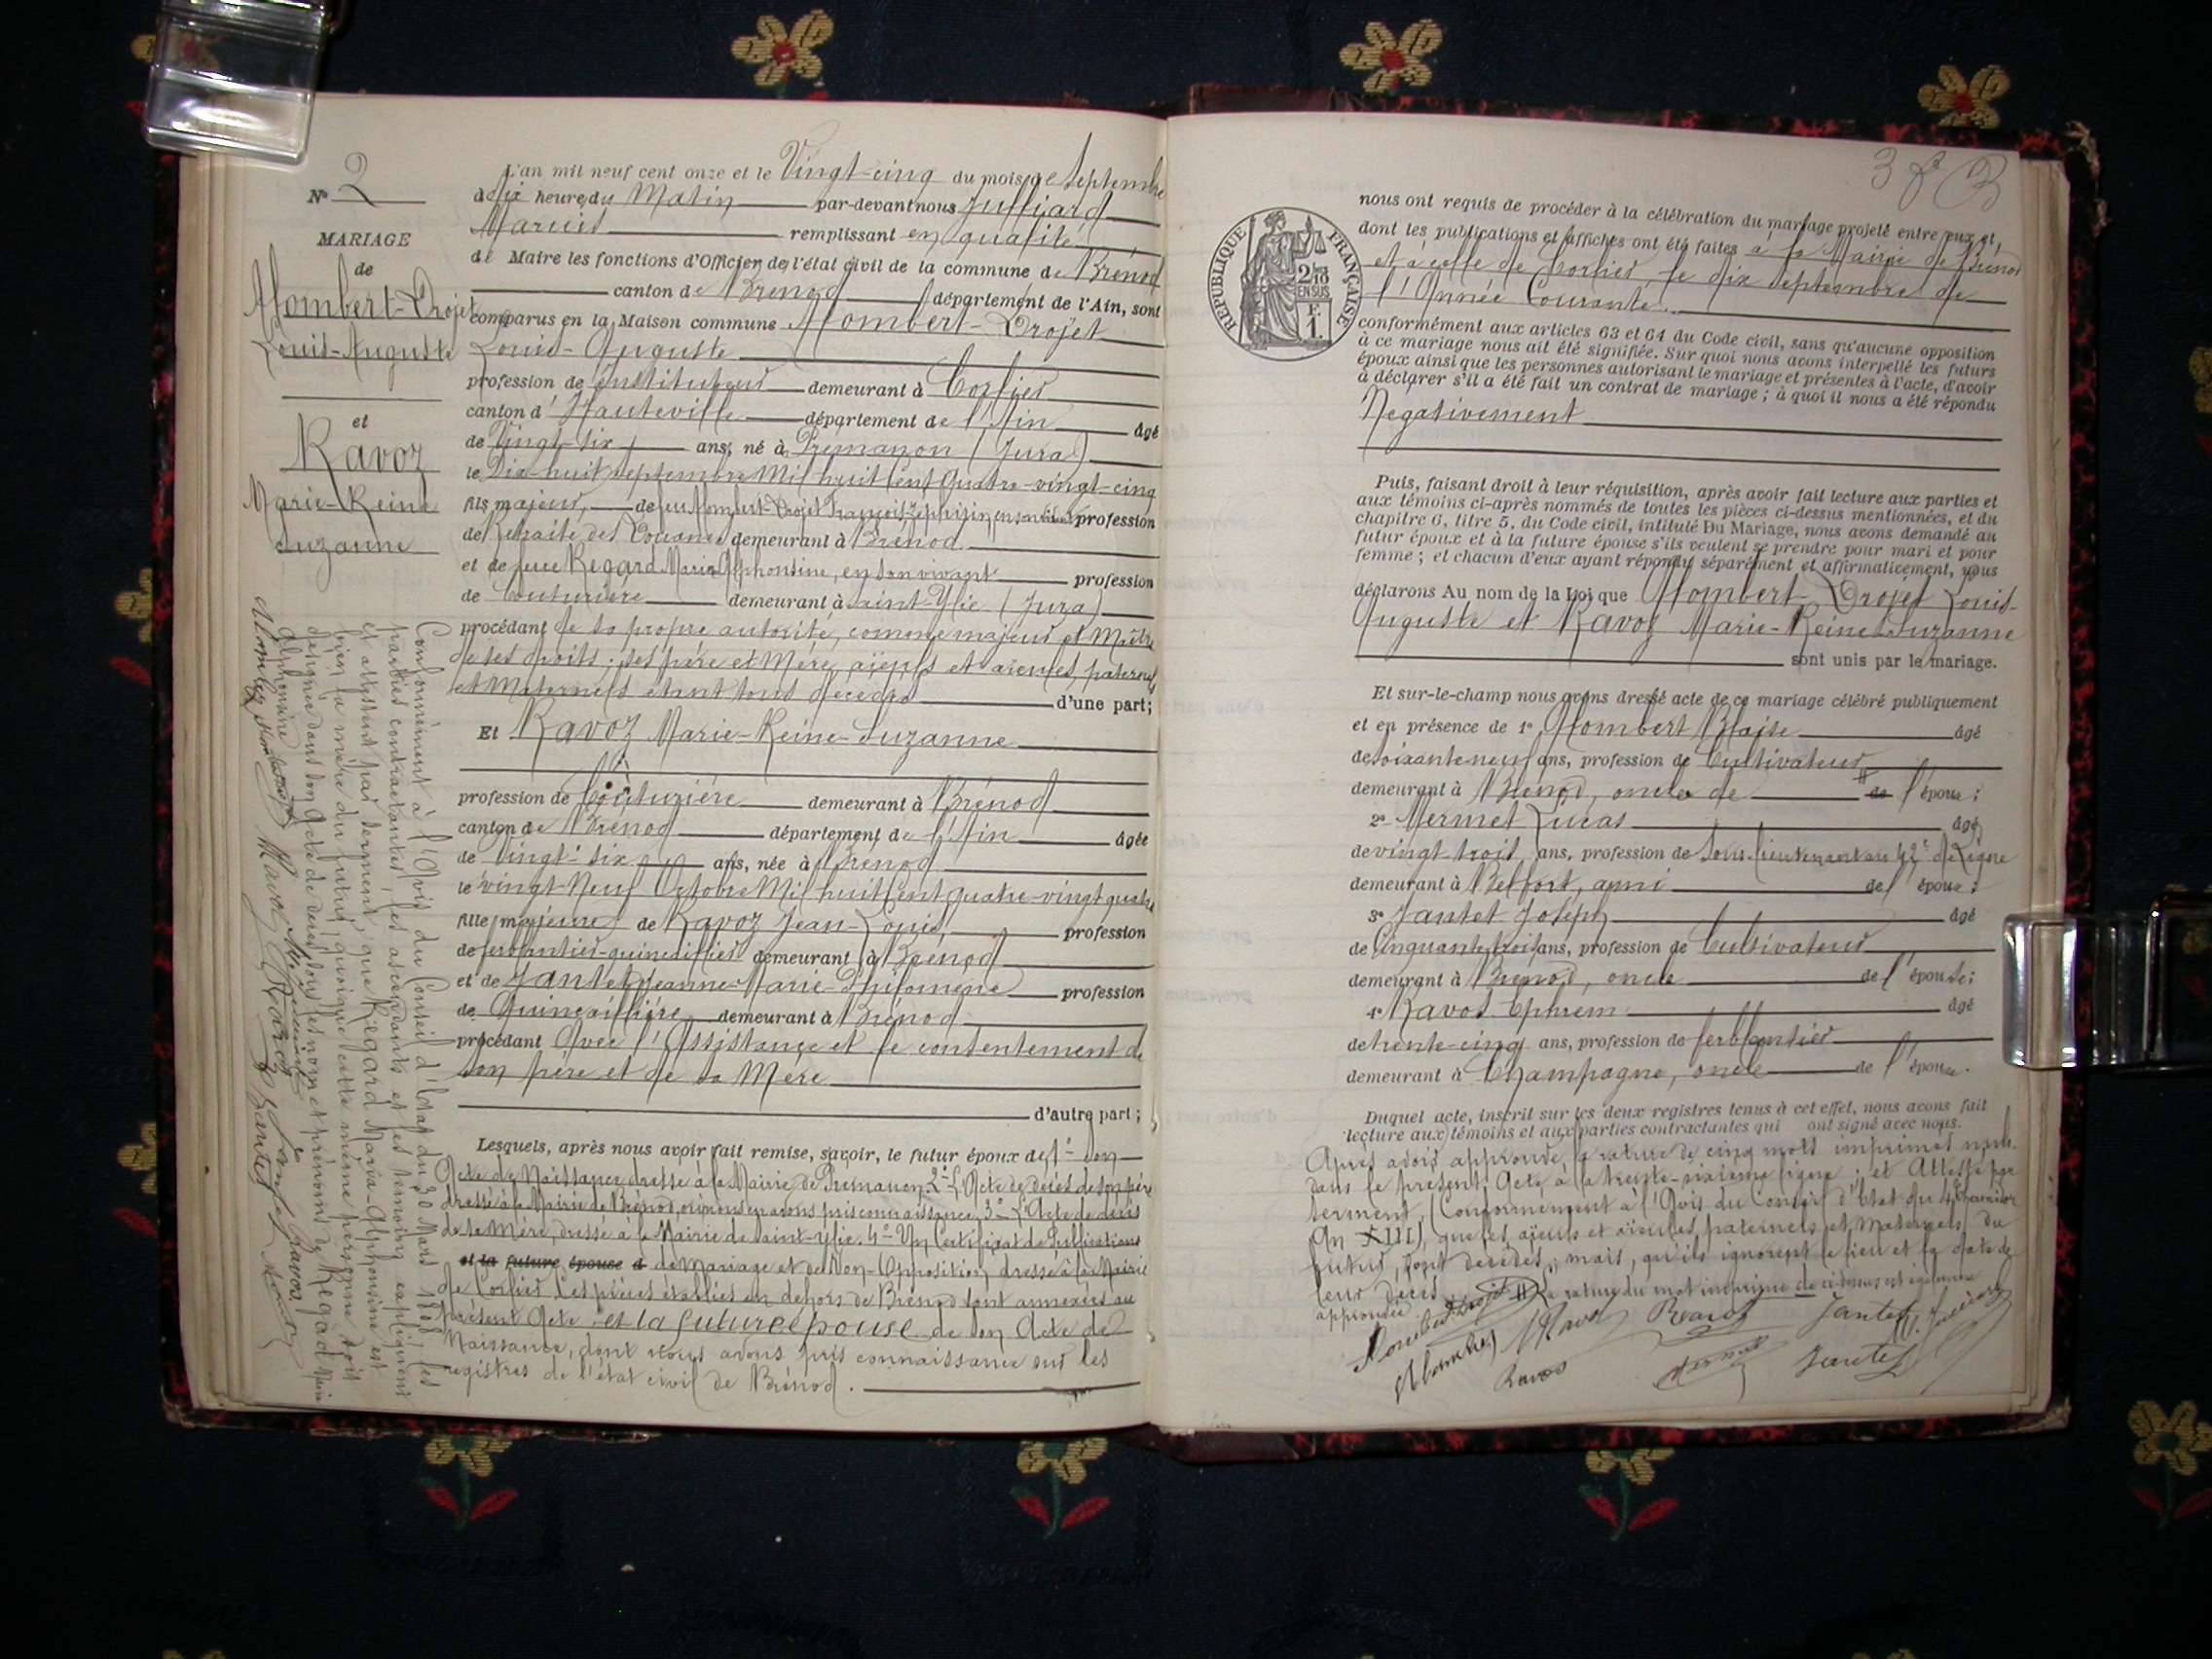 N° 2
MARIAGE
de
Mombert-Projet
Louis-Auguste
et
Ravoz
Marie-Reine
Suzanne
L'an mil neuf cent onze et le Vingt-cinq du mois de Septembre
à dix heures du Matin par-devant nous Julliard
Marius remplissant en qualité
de Maire les fonctions d'Officier de l'état civil de la commune de Brénod
canton de Brénod département de l'Ain, sont
comparus en la Maison commune Mombert-Projet
Louis-Auguste
profession de instituteur demeurant à Corlier
canton d'Hauteville département de l'Ain âgé
de Vingt-six ans, né à Prémanon (Jura)
le Dix-huit septembre Mil huit cent Quatre-vingt-cinq
fils majeur, de feu Mombert-Projet François Zéphirin, en son vivant profession
de Retraité des Douanes demeurant à Brénod
et de feue Regard Maria Alphonsine, en son vivant profession
de Couturière demeurant à Saint-Ylie (Jura)
procédant de sa propre autorité, comme majeur et Maître
de ses droits; ses père et Mère, aïeuls et aïeules, paternels
et Maternels étant tous décédés d'une part;
Et Ravoz Marie-Reine-Suzanne
profession de Couturière demeurant à Brénod
canton de Brénod département de l'Ain âgée
de Vingt-six ans, née à Brénod
le vingt-Neuf Octobre Mil huit cent quatre-vingt quatre
fille majeure de Ravoz Jean-Louis, profession
de ferblantier-quincaillier demeurant à Brénod
et de Jantet Jeanne-Marie-Philomène profession
de Quincaillière demeurant à Brénod
procédant Avec l'Assistance et le consentement de
son père et de sa Mère
d'autre part;
Lesquels, après nous avoir fait remise, savoir, le futur époux de 1° Son
Acte de Naissance, dressé à la Mairie de Prémanon, 2° L'Acte de décès de son père
dressé à la Mairie de Brénod, où nous en avons pris connaissance, 3° L'Acte de décès
de sa Mère, dressé à la Mairie de Saint-Ylie. 4° Un Certificat de Publications
et la future épouse d de Mariage et de Non-Opposition, dressé à la Mairie
de Corlier. Les pièces établies en dehors de Brénod sont annexées au
présent Acte et la future épouse de son Acte de
Naissance, dont nous avons pris connaissance sur les
registres de l'état civil de Brénod.
Conformément à l'Avis du Conseil d'Etat du 30 Mars 1808, les
parties contractantes, les ascendants et les témoins expliquent
et attestent par serment, que Regard Maria-Alphonsine est
bien la mère du futur, quoique cette même personne soit
désignée dans son Acte de décès sous les nom et prénoms de Regard Marie
Alphonsine
3 f 3
RÉPUBLIQUE FRANÇAISE
2/10
EN SUS
F.
1.
nous ont requis de procéder à la célébration du mariage projeté entre eux et,
dont les publications et affiches ont été faites à la Mairie de Brénod
et à celle de Corlier le dix septembre de
l'Année Courante.
conformément aux articles 63 et 64 du Code civil, sans qu'aucune opposition
à ce mariage nous ait été signifiée. Sur quoi nous avons interpellé les futurs
époux ainsi que les personnes autorisant le mariage et présentes à l'acte, d'avoir
à déclarer s'il a été fait un contrat de mariage; à quoi il nous a été répondu
Négativement
Puis, faisant droit à leur réquisition, après avoir fait lecture aux parties et
aux témoins ci-après nommés de toutes les pièces ci-dessus mentionnées, et du
chapitre 6, titre 5, du Code civil, intitulé Du Mariage, nous avons demandé au
futur époux et à la future épouse s'ils veulent se prendre pour mari et pour
femme; et chacun d'eux ayant répondu séparément et affirmativement, nous
déclarons Au nom de la Loi que Mombert-Projet Louis-
Auguste et Ravoz Marie-Reine-Suzanne
sont unis par le mariage.
Et sur-le-champ nous avons dressé acte de ce mariage célébré publiquement
et en présence de 1° Mombert Blaise âgé
de soixante-neuf ans, profession de Cultivateur
demeurant à Brénod, oncle de de l'époux;
2° Mermet Lucas âgé
de vingt-trois ans, profession de Sous-lieutenant au 42e de Ligne
demeurant à Belfort, ami de l'époux;
3° Jantet Joseph âgé
de Cinquante-trois ans, profession de Cultivateur
demeurant à Brénod, oncle de l'épouse;
4° Ravoz Ephrem âgé
de trente-cinq ans, profession de ferblantier
demeurant à Champagne, oncle de l'épouse.
Duquel acte, inscrit sur les deux registres tenus à cet effet, nous avons fait
lecture aux témoins et aux parties contractantes qui ont signé avec nous.
Après avoir approuvé la rature de cinq mots imprimés nuls
dans le présent Acte, à la trente-sixième ligne; et Attesté par
serment, (Conformément à l'Avis du Conseil d'Etat du 4 Thermidor
An XIII), que les aïeuls et aïeules, paternels et Maternels du
futur, sont décédés; mais, qu'ils ignorent le lieu et la date de
leur décès. La rature du mot imprimé de ci-dessus est également
approuvée.
Ravoz Jantet
Ravoz Jantet